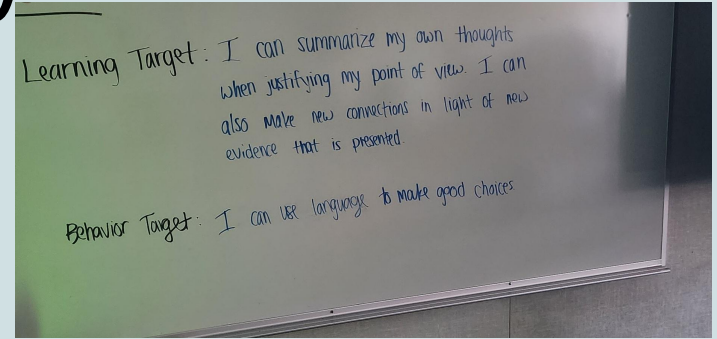 Learning Target: I can summarize my own thoughts
when justifying my point of view. I can
also make new connections in light of new
evidence that is presented.
Behavior Target: I can use language to make good choices